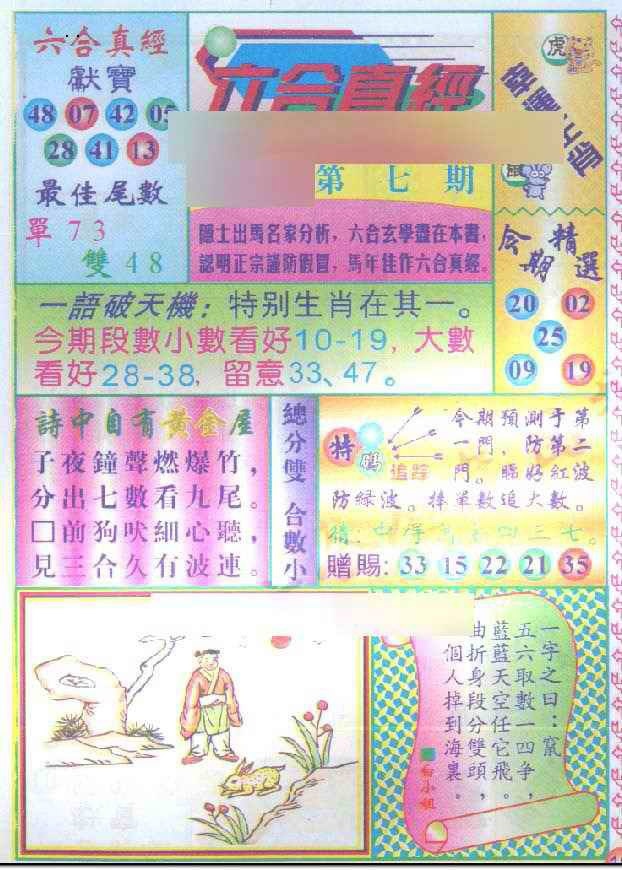 六合真經
獻寶
48 07 42 05
28 41 13
最佳尾數
單73
雙48
六合真經
第七期
隱士出馬名家分析，六合玄學盡在本書，
認明正宗謹防假冒，馬年佳作六合真經。
虎
鼠
今期精選
20 02
25
09 19
一語破天機：特别生肖在其一。
今期段數小數看好10-19，大數
看好28-38，留意33、47。
詩中自有黃金屋
子夜鐘聲燃爆竹，
分出七數看九尾。
□前狗吠細心聽，
見三合久有波連。
總分雙 合數小
特碼
追踪
今期預測于第
一門，防第二
門。睇好紅波
防緑波。捧單數追大數。
四三七。
贈賜：33 15 22 21 35
一字之曰：竄
五六取數一四争，
藍藍天空任它飛。
曲折身段分雙頭，
個人掉到海裏。
白小姐